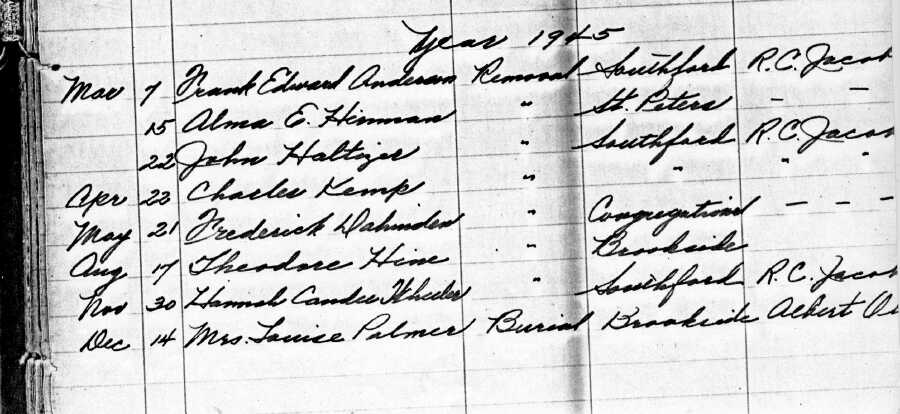 Year 1945
Mar 7 Frank Edward Anderson Removal Southford R.C. Jacob
15 Alma E. Hinman " St. Peters — —
22 John Haltizer " Southford R.C. Jacob
Apr 22 Charles Kemp " " " "
May 21 Frederick Dahinden " Congregational — — —
Aug 17 Theodore Hine " Brookside
Nov 30 Hannah Candee Wheeler " Southford R.C. Jacob
Dec 14 Mrs. Louise Palmer Burial Brookside Albert